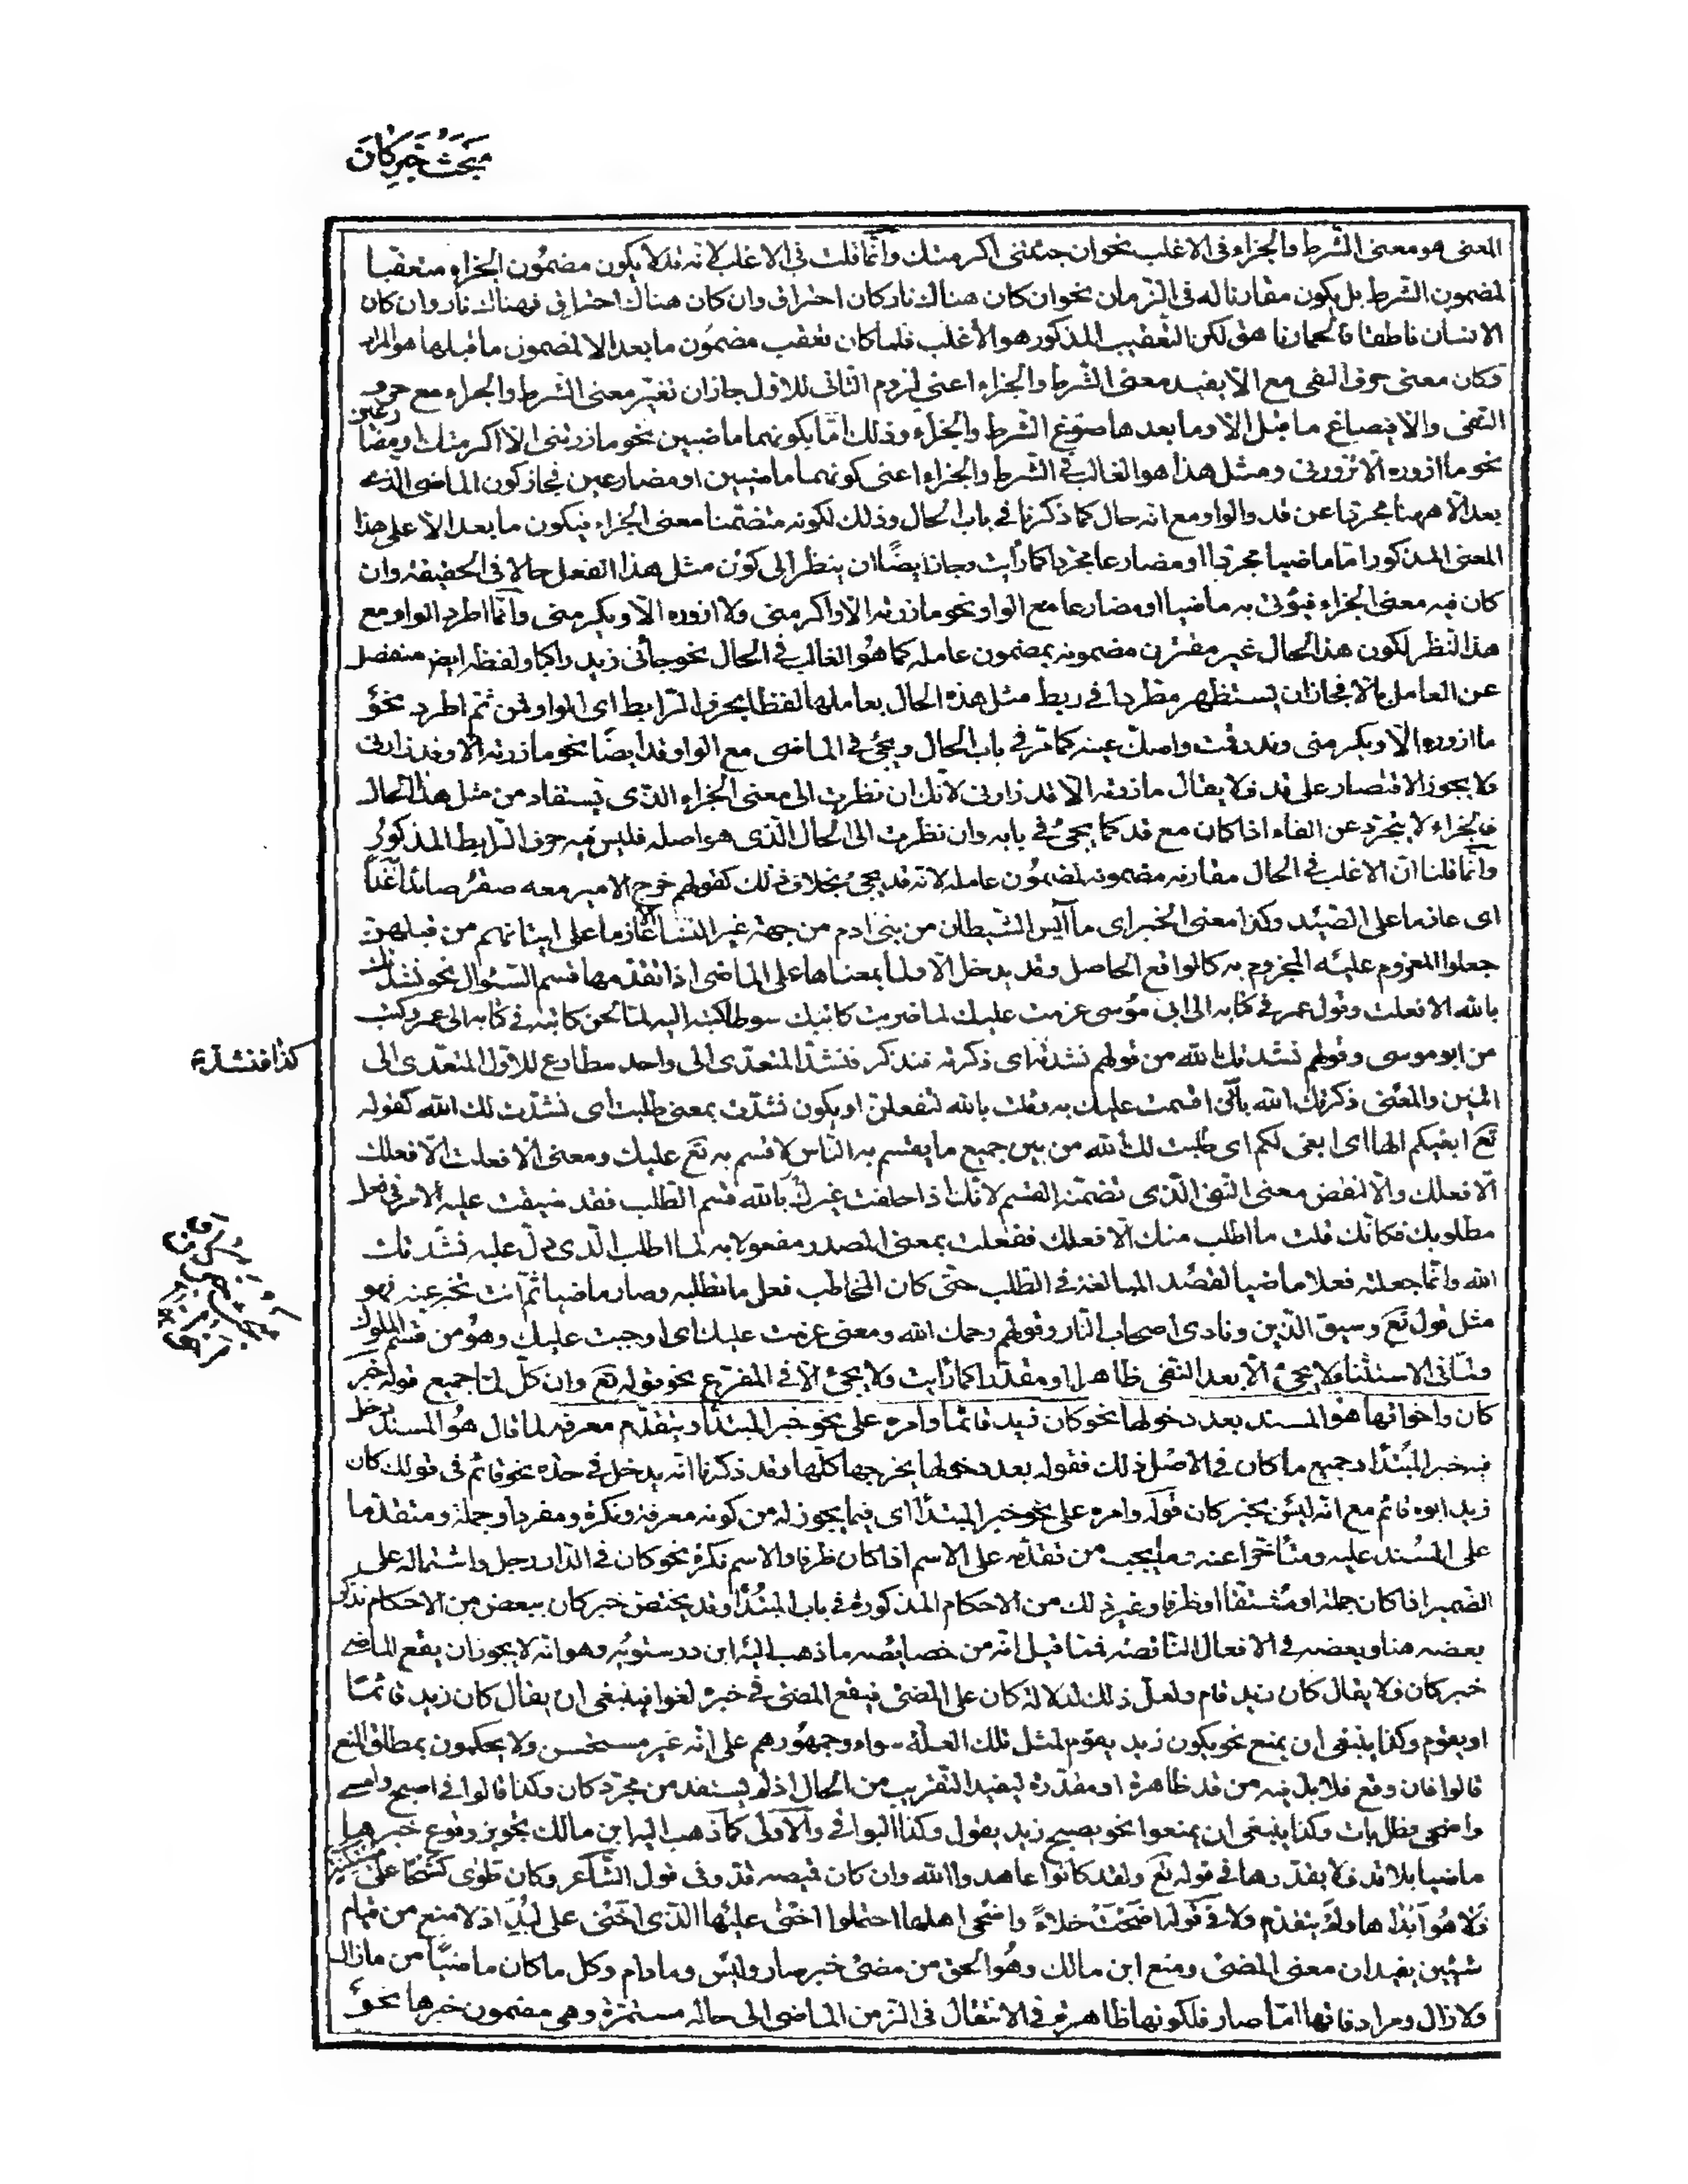 مبحث خبر كان
المعنى هو معنى الشرط والجزاء فى الاغلب نحو ان جئتنى اكرمتك وانّما قلت فى الاغلب لانه قد لا يكون مضمون الجزاء متعقبا
لمضمون الشرط بل يكون مقارنا له فى الزمان نحو ان كان هناك نار كان احتراق وان كان هناك احتراق فهناك نار وان كان
الانسان ناطقا فالحمار ناهق لكن التعقيب المذكور هو الأغلب فلما كان تعقب مضمون ما بعد الا لمضمون ما قبلها هو المراد
وكان معنى حرف النفى مع الّا يفيد معنى الشرط والجزاء اعنى لزوم الثانى للاوّل جاز ان تغير معنى الشرط والجزاء مع حرف
النفى والا فيصاغ ما قبل الّا وما بعدها صوغ الشرط والجزاء وذلك امّا بكونهما ماضيين نحو ما زرتنى الّا اكرمتك او مضارعين
نحو ما ازوره الّا تزورنى ومثل هذا هو الغالب فى الشرط والجزاء اعنى كونهما ماضيين او مضارعين فجاز كون الماضى الذى
بعد الّا ههنا مجردا عن قد والواو مع انه حال كما ذكرنا فى باب الحال وذلك لكونه متضمّنا معنى الجزاء فيكون ما بعد الّا على هذا
المعنى المذكور امّا ماضيا مجردا او مضارعا مجردا كما رأيت وجاز ايضًا ان ينظر الى كون مثل هذا الفعل حالا فى الحقيقة وان
كان فيه معنى الجزاء فيؤتى به ماضيا او مضارعا مع الواو نحو ما زرته الّا واكرمنى ولا ازوره الّا ويكرمنى وانّما اطرد الواو مع
هذا النظر لكون هذا الحال غير مقترن مضمونه بمضمون عامله كما هو الغالب فى الحال نحو جائنى زيد راكبا ولفظه ايض منفصل
عن العامل بالّا فجاز ان يستظهر مطردا فى ربط مثل هذه الحال بعاملها لفظا بحرف الرابط اى الواو فمن ثم اطرد نحو
ما ازوره الّا ويكرمنى وندر قمت واصكّ عينه كما مرّ فى باب الحال ويجئ فى الماضى مع الواو قد ايضًا نحو ما زرته الّا وقد زارنى
ولا يجوز الاقتصار على قد فلا يقال ما زرته الّا قد زارنى لانك ان نظرت الى معنى الجزاء الذى يستفاد من مثل هذا الحال
فالجزاء لا يتجرّد عن الفاء اذا كان مع قد كما يجئ فى بابه وان نظرت الى الحال الذى هو اصله فليس فيه حرف الرابط المذكور
وانّما قلنا انّ الاغلب فى الحال مقارنة مضمونه لمضمون عامله لانه قد يجئ بخلاف ذلك كقولهم خرج الامير معه صقر صائدا غدًا
اى عازما على الصيد وكذا معنى الخبر اى ما آيس الشيطان من بنى ادم من جهة غير النساء الا عازما على اتيانهم من قبلهن
جعلوا المعزوم عليه المجزوم به كالواقع الحاصل وقد يدخل الّا ولمّا بمعناها على الماضى اذا تقدّمهما قسم السؤال نحو نشدتك
بالله الا فعلت وقول عمر فى كتابه الى ابى موسى عزمت عليك لما ضربت كاتبك سوطا كتبه اليه لمّا لحن كاتبه فى كتابه الى عمر وكتب
من ابو موسى وقولهم نشدتك الله من قولهم نشدته اى ذكرته فتذكر فنشد المتعدّى الى واحد مطاوع للاوّل المتعدّى الى
كذا فنشد
اثنين والمعنى ذكرتك الله بان اقسمت عليك به وقلت بالله لتفعلن او يكون نشدت بمعنى طلبت اى نشدت لك الله كقوله
تع ابغيكم الها اى ابغى لكم اى طلبت لك الله من بين جميع ما يقسم به الناس لاقسم به تع عليك ومعنى الّا فعلت الّا فعلك
الّا فعلك والّا لنقض معنى النفى الذى تضمّنه القسم لانك اذا حلفت غيرك بالله قسم الطلب فقد ضيقت عليه الامر فى فعل
مطلوبك فكانّك قلت ما اطلب منك الّا فعلك ففعلت بمعنى المصدر مفعولا به لما اطلب الذى دلّ عليه نشدتك
الله وانّما جعلته فعلا ماضيا لقصد المبالغة فى الطلب حتى كان المخاطب فعل ما تطلبه وصار ماضيا ثم انت تخبر عنه فهو
مثل قوله تع وسيق الذين ونادى اصحاب النار وقولهم رحمك الله ومعنى عزمت عليك اى اوجبت عليك وهو من قسم الملوك
ولمّا فى الاستثناء لا يجئ الّا بعد النفى ظاهرا او مقدّرا كما رأيت ولا يجئ الّا فى المفرّغ نحو قوله تع وان كلّ لمّا جميع قوله خبر
كان واخواتها هو المسند بعد دخولها نحو كان زيد قائما وامره على نحو خبر المبتدأ ويتقدّم معرفة لما قال هو المسند دخل
فيه خبر المبتدأ وجميع ما كان فى الاصل ذلك فقوله بعد دخولها يخرجها كلها وقد ذكرنا انّه يدخل فى حدّه نحو قائم فى قولك كان
زيد ابوه قائم مع انّه ليس بخبر كان قوله وامره على نحو خبر المبتدأ اى فيما يجوز له من كونه معرفة ونكرة ومفردا وجملة ومتقدّما
على المسند عليه ومتأخّرا عنه وما يجب من تقدّمه على الاسم اذا كان ظرفا والاسم نكرة نحو كان فى الدّار رجل واشتماله على
الضمير اذا كان جملة او مشتقّا او ظرفا وغير ذلك من الاحكام المذكورة فى باب المبتدأ وقد يختصّ خبر كان ببعض من الاحكام نذكر
بعضه هنا وبعضه فى الافعال الناقصة فمما قيل انّه من خصايصه ما ذهب اليه ابن درستويه وهو انه لا يجوز ان يقع الماضى
خبر كان فلا يقال كان زيد قام ولعلّ ذلك لدلالة كان على المضىّ فيقع المضىّ فى خبره لغوا فينبغى ان يقال كان زيد قائمًا
او يقوم وكذا ينبغى ان يمنع نحو يكون زيد يقوم لمثل تلك العلّة سواء وجمهورهم على انه غير مستحسن ولا يحكمون بمطلق المنع
قالوا فان وقع فلا بدّ فيه من قد ظاهرة او مقدّرة ليفيد التقريب من الحال اذ لم يستفد من مجرّد كان وكذا قالوا فى اصبح وامسى
واضحى وظل وبات وكذا ينبغى ان يمنعوا نحو يصبح زيد يقول وكذا البواقى والاولى كما ذهب اليه ابن مالك تجويز وقوع خبرها
ماضيا بلا قد فلا يقدّرها فى قوله تع ولقد كانوا عاهدوا الله وان كان قميصه قدّ وفى قول الشاعر وكان طوى كشحًا على مستكنّة
فلا هو ابداها ولم يتقدّم ولا فى قوله اضحت خلاءً واضحى اهلها احتملوا اخنى عليها الذى اخنى على لُبَد اذ لا منع من قيام
شيئين يفيدان معنى المضىّ ومنع ابن مالك وهو الحق من مضىّ خبر صار وليس وما دام وكل ما كان ماضيًا من ما زال
ولا زال ومرادفاتها امّا صار فلكونها ظاهرة فى الانتقال فى الزمن الماضى الى حالة مستمرّة وهى مضمون خبرها نحو